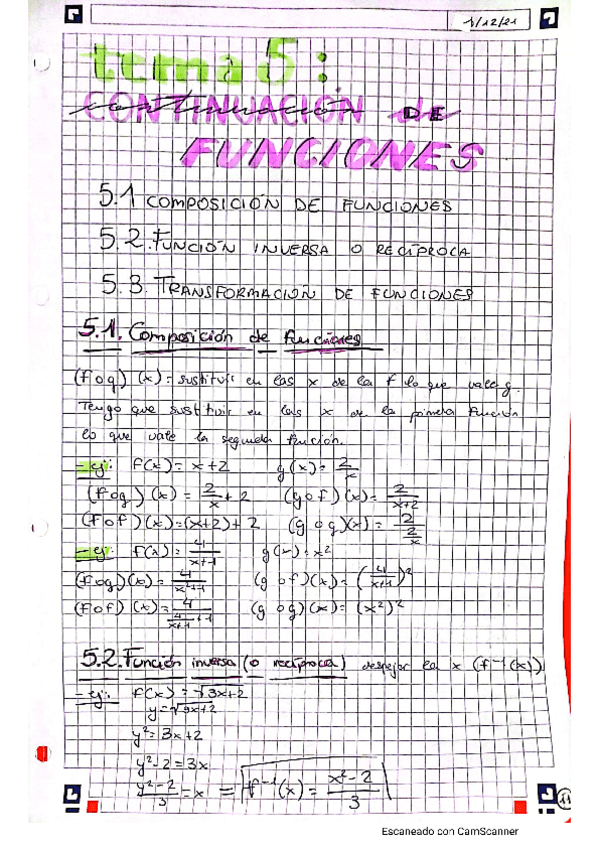 1/12/21
tema 5:
CONTINUACIÓN DE
FUNCIONES
5.1 COMPOSICIÓN DE FUNCIONES
5.2. FUNCIÓN INVERSA O RECÍPROCA
5.3. TRANSFORMACIÓN DE FUNCIONES
5.1. Composición de funciones
(f o g) (x) = sustituir en las x de la f lo que vale g.
Tengo que sustituir en las x de la primera función
lo que vale la segunda función.
- ej: f(x) = x+2 g(x) = 2/x
(f o g) (x) = 2/x + 2 (g o f) (x) = 2/(x+2)
(f o f) (x) = (x+2) + 2 (g o g)(x) = 2/(2/x)
- ej: f(x) = 4/(x+1) g(x) = x²
(f o g)(x) = 4/(x²+1) (g o f)(x) = (4/(x+1))²
(f o f) (x) = 4/(4/(x+1) + 1) (g o g) (x) = (x²)²
5.2. Función inversa (o recíproca) despejar la x (f⁻¹(x))
- ej: f(x) = √3x+2
y = √3x+2
y² = 3x+2
y²-2 = 3x
(y²-2)/3 = x = f⁻¹(x) = (x²-2)/3
11
Escaneado con CamScanner